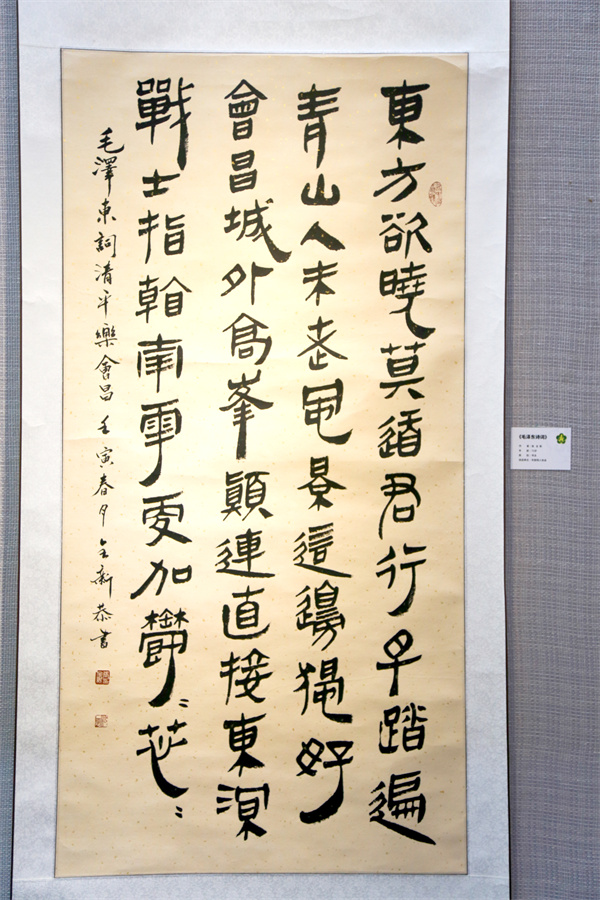 東方欲曉莫道君行早踏遍
青山人未老風景這邊独好
會昌城外高峯顛連直接東溟
戰士指看南粤更加鬱〻葱〻
毛澤東詞清平樂會昌 壬寅春月全新恭書
《毛泽东诗词》